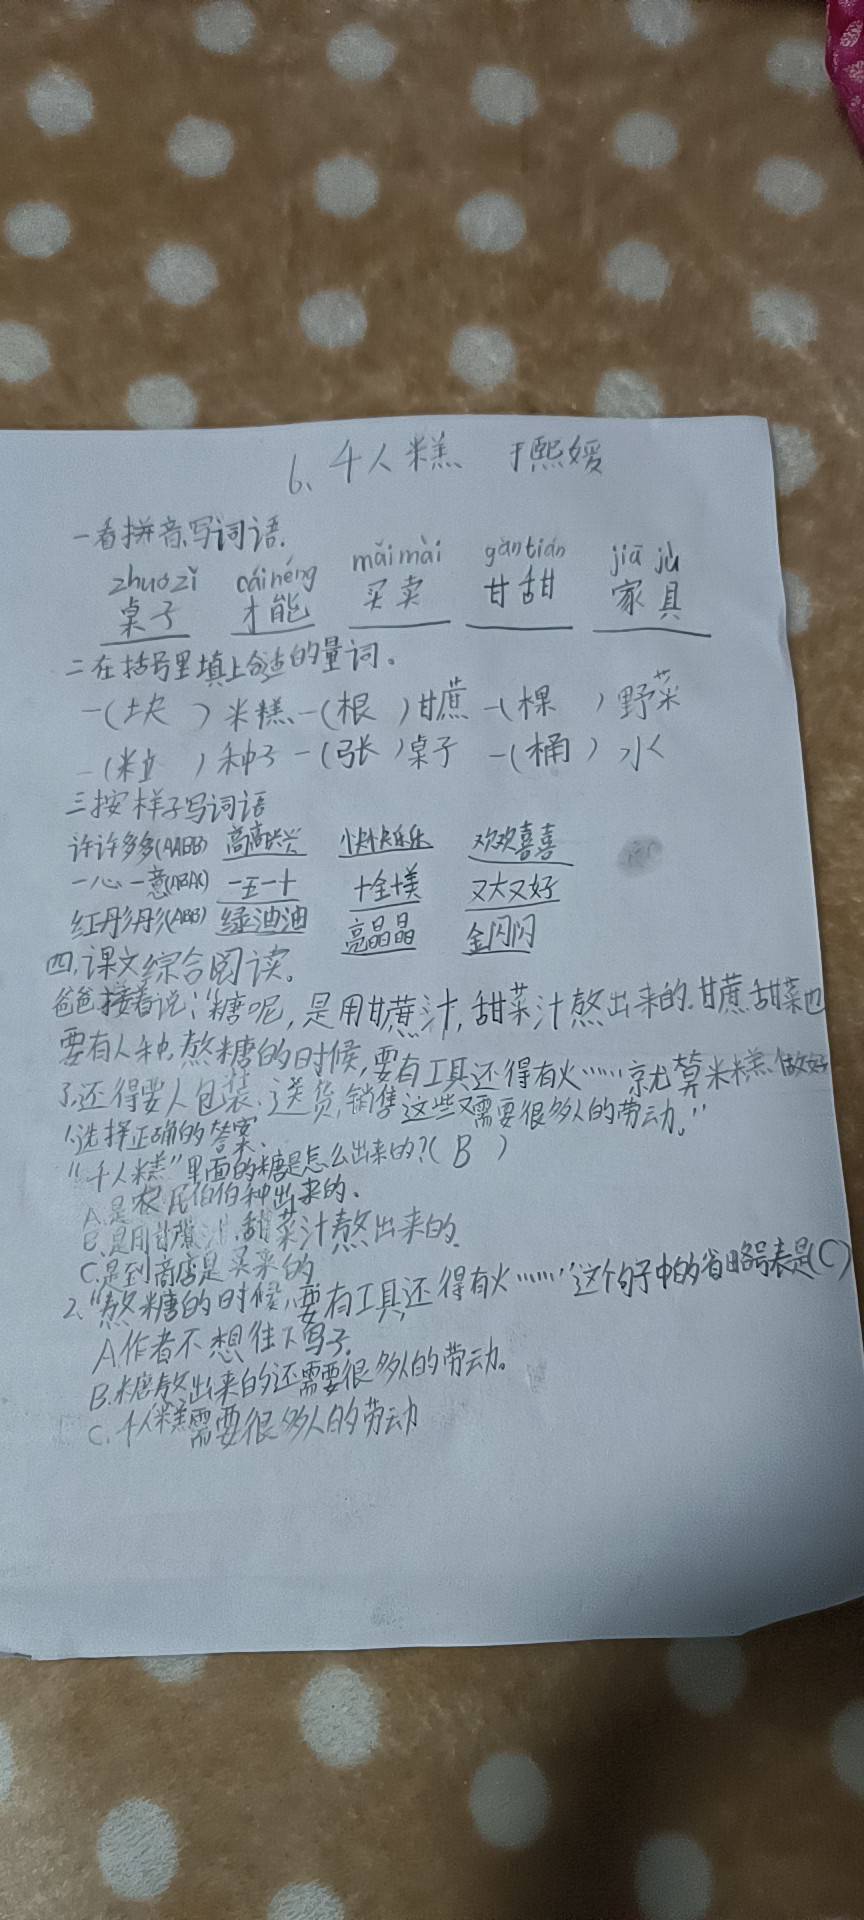 6、千人糕 于熙媛
一看拼音,写词语.
zhuōzǐ cáinéng mǎimài gāntián jiā jù
桌子 才能 买卖 甘甜 家具
二在括号里填上合适的量词。
一(块 )米糕、一(根 )甘蔗 一(棵 )野菜
一(粒 )种子 一(张 )桌子 一(桶 )水
三按样子写词语
许许多多(AABB) 高高兴兴 快快乐乐 欢欢喜喜
一心一意(ABAC) 一五一十 十全十美 又大又好
红彤彤(ABB) 绿油油 亮晶晶 金闪闪
四,课文综合阅读。
爸爸接着说:“糖呢,是用甘蔗汁,甜菜汁熬出来的.甘蔗甜菜也
要有人种,熬糖的时候,要有工具还得有火……就算米糕做好
了,还得要人包装、送货,销售这些又需要很多人的劳动。”
1、选择正确的答案、
“千人糕”里面的糖是怎么出来的?( B )
A.是农民伯伯种出来的、
B.是用甘蔗汁,甜菜汁熬出来的.
C.是到商店是买来的
2、“熬糖的时候,要有工具,还得有火……”这个句子中的省略号表是(C)
A.作者不想往下写了.
B.糖熬出来的还需要很多人的劳动。
C.千人糕需要很多人的劳动